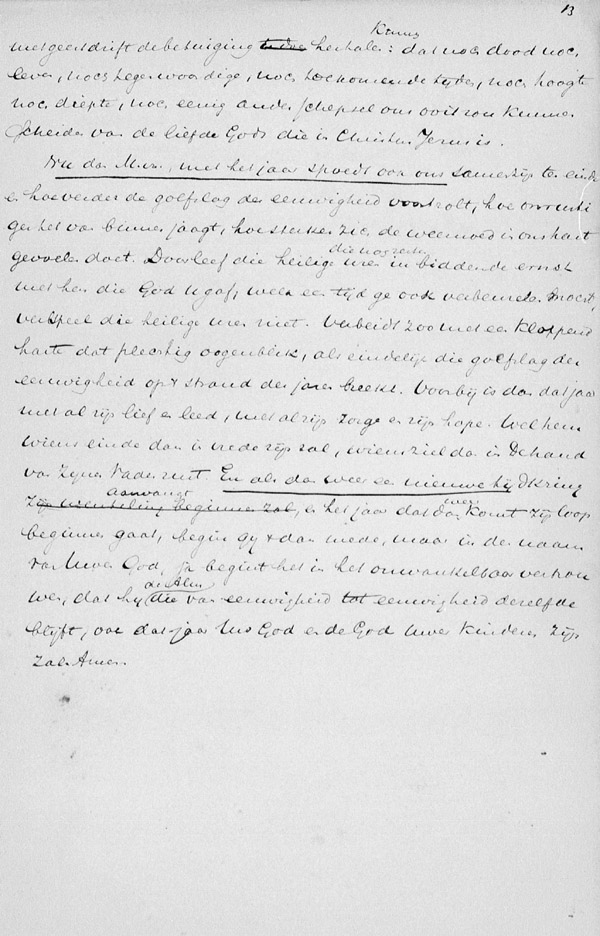 13
kunnen
met geestdrift de betuiging herhalen: dat noch dood noch
leven, noch tegenwoordige, noch toekomende tijden, noch hoogte
noch diepte, noch eenig ander schepsel ons ooit zou kunnen
scheiden van de liefde Gods die in Christus Jezus is.
Nu dan M., met het jaar spoedt ook ons samenzijn ten einde
en hoe verder de golfslag der eeuwigheid voortrolt, hoe onrusti
ger het van binnen jaagt, hoe sterker zich de weemoed in ons hart
gevoelen doet. Doorleef die heilige uren in biddende ernst
die nog resten
met hen die God U gaf, welk een tijd ge ook verbeurde
verspeel die heilige uren niet. Verbeidt zoo met een kloppend
harte dat plechtig oogenblik, als eindelijk die golfslag der
eeuwigheid op 't strand der jaren breekt. Voorbij is dan dat jaar
met al zijn lief en leed, met al zijn zorge en zijn hope. Wel hem
wiens einde dan in vrede zijn zal, wiens ziel dan in de hand
van zijnen Vader rust. En als dan weer een nieuwe tijdkring
aanvangt
zijn wenteling beginnen zal, en het jaar dat dan komt zijn loop
beginnen gaat, begin gij 't dan mede, maar in den naam
van Uwen God, ja begint het in het onwankelbaar vertrou
wen, dat hij die van eeuwigheid tot eeuwigheid dezelfde
blijft, ook dat jaar Uw God en de God Uwer kinderen zijn
zal. Amen.